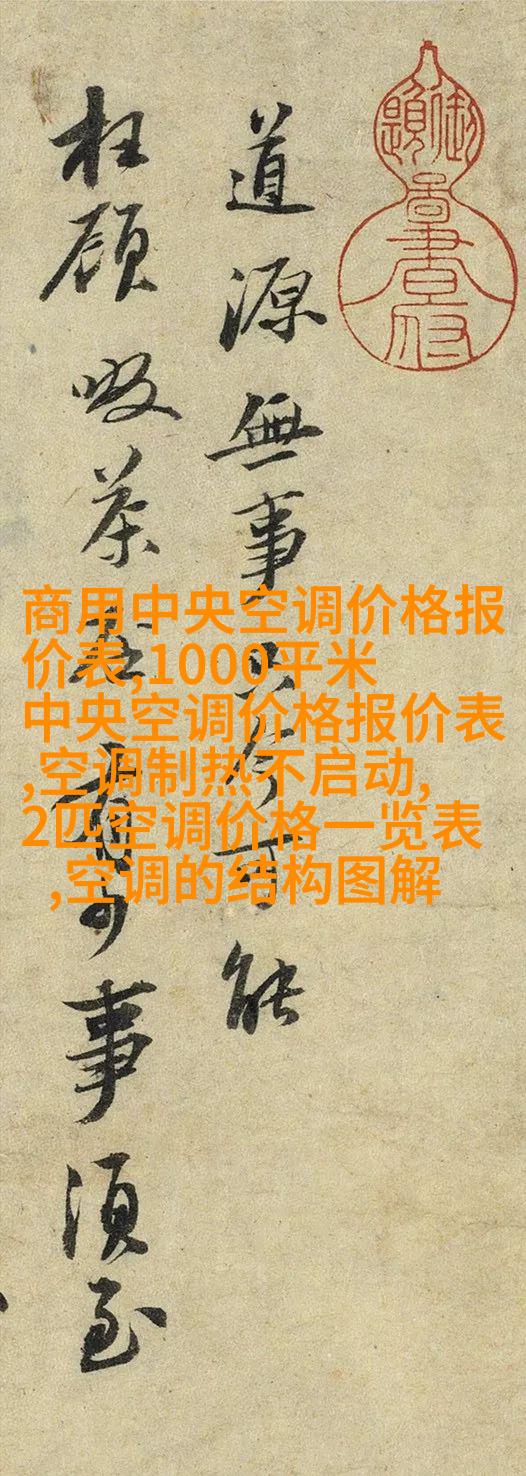 道源無事只今可能
枉顧啜茶否有少事須至
商用中央空调价格报
价表,1000平米
中央空调价格报价表
,空调制热不启动,
2匹空调价格一览表
,空调的结构图解